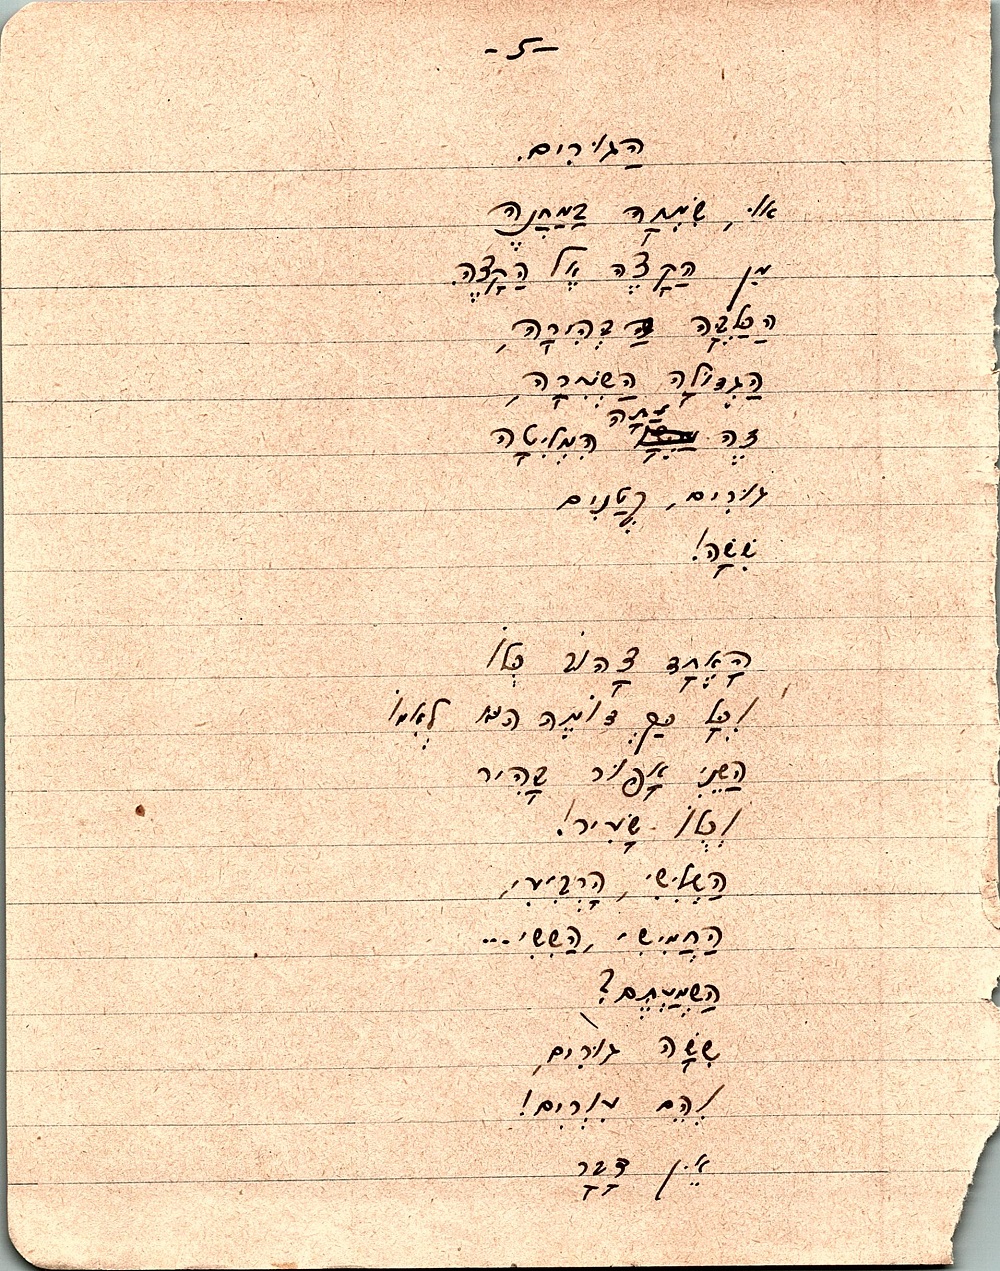 -5-
הַגּוּרִים.
אוֹי, שִׂמְחָה בַּמַּחֲנֶה
מִן הַקָּצֶה אֶל הַקָּצֶה.
הַכַּלְבָּה הַבְּהִירָה,
הַגְּדוֹלָה, הַשְּׁחֹרָה,
זֶה עַתָּה הִמְלִיטָה
גּוּרִים, קְטַנִּים
שִׁשָּׁה!
הָאֶחָד צָהוֹב כֻּלּוֹ
וְכָל כַּךְ דּוֹמֶה הוּא לְאִמּוֹ
הַשֵּׁנִי אָפוֹר בָּהִיר
וְכֻלּוֹ שָׂעִיר!
הַשְּׁלִישִׁי, הָרְבִיעִי,
הַחֲמִישִׁי, הַשִּׁשִּׁי...
הַשְׁמַעְתֶּם?
שִׁשָּׁה גּוּרִים,
וְהֵם עִוְרִים!
אֵין דָּבָר